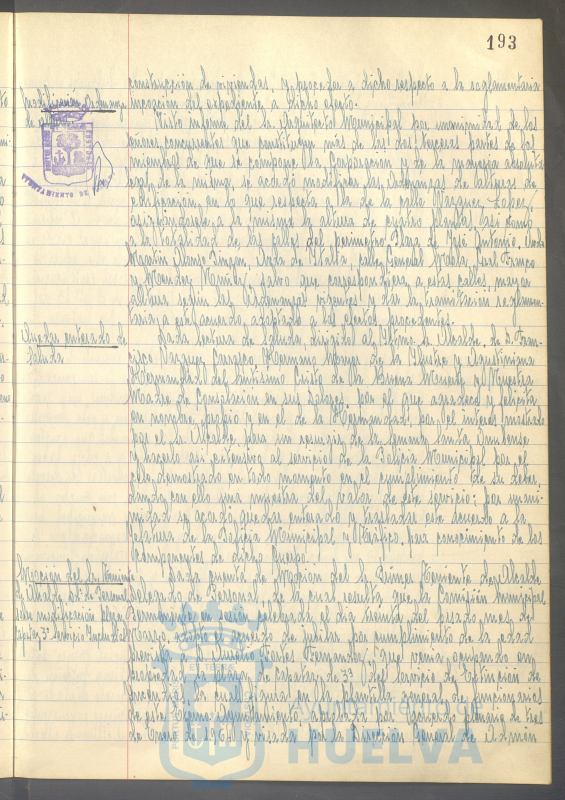 193
construcción de viviendas, y proceder a dicho respecto a la reglamentaria
incoación del expediente a dicho efecto.
Modificación Ordenanzas
Visto informe del Sr. Arquitecto Municipal por unanimidad de los
señores concurrentes que constituyen más de las dos terceras partes de los
miembros de que se compone la Corporación y de la mayoría absoluta
legal de la misma, se acordó modificar las Ordenanzas de alturas de
edificación, en lo que respecta a la de la calle Vázquez López,
asignándosele a la misma la altura de cuatro plantas, así como
a la totalidad de las calles del perímetro Plaza de José Antonio, Avda
Martín Alonso Pinzón, Avda de Italia, calles General Mola, Gral Franco
y Méndez Núñez, salvo que correspondiera a estas calles, mayor
altura según las Ordenanzas vigentes y dar la tramitación reglamen-
taria a este acuerdo, adoptado a los efectos procedentes.
Quedar enterado de
Saluda
Dada lectura de Saluda, dirigido al Iltmo. Sr. Alcalde, de D. Fran-
cisco Vázquez Carrasco, Hermano Mayor de la Ilustre y Agustiniana
Hermandad del Santísimo Cristo de la Buena Muerte y Nuestra
Madre de Consolación en sus Dolores, por el que agradece y felicita
en nombre propio y en el de la Hermandad, por el interés mostrado
por el Sr. Alcalde, para un resurgir de la Semana Santa Onubense
y hacerlo así extensivo al servicio de la Policía Municipal por el
celo demostrado en todo momento en el cumplimiento de su deber,
dando con ello una muestra del valor de este servicio; por unani-
midad se acordó quedar enterado y trasladar este acuerdo a la
Jefatura de la Policía Municipal y Tráfico, para conocimiento de los
componentes de dicho Cuerpo.
Moción del Sr. Teniente
de Alcalde Del. de Personal
sobre modificación plaza
Capataz 3ª Servicio Incendios
Dada cuenta de Moción del Sr. Primer Teniente de Alcalde
Delegado de Personal, de la cual resulta que la Comisión Municipal
Permanente en sesión celebrada el día treinta del pasado mes de
Marzo, adoptó acuerdo de jubilar por cumplimiento de la edad
prevista a D. Fernández, que venía ocupando en
propiedad la plaza de Capataz de 3ª del Servicio de Extinción de
Incendios, la cual figura en la plantilla general de funcionarios
de este Excmo. Ayuntamiento, aprobada por acuerdo plenario de tres
de Enero de 1964 y visada por la Dirección General de Admón
Ayuntamiento de
HUELVA